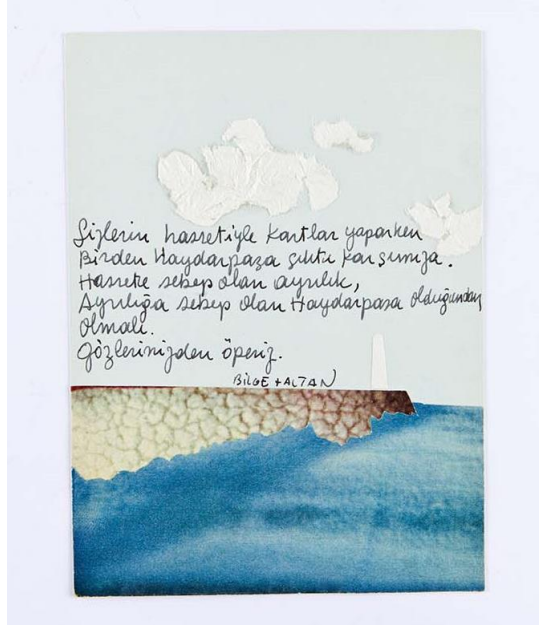 Sizlerin hasretiyle kartlar yaparken
Birden Haydarpaşa çıktı karşımıza.
Hasrete sebep olan ayrılık,
Ayrılığa sebep olan Haydarpaşa olduğundan
olmalı.
Gözlerinizden öperiz.
BİLGE + ALTAN